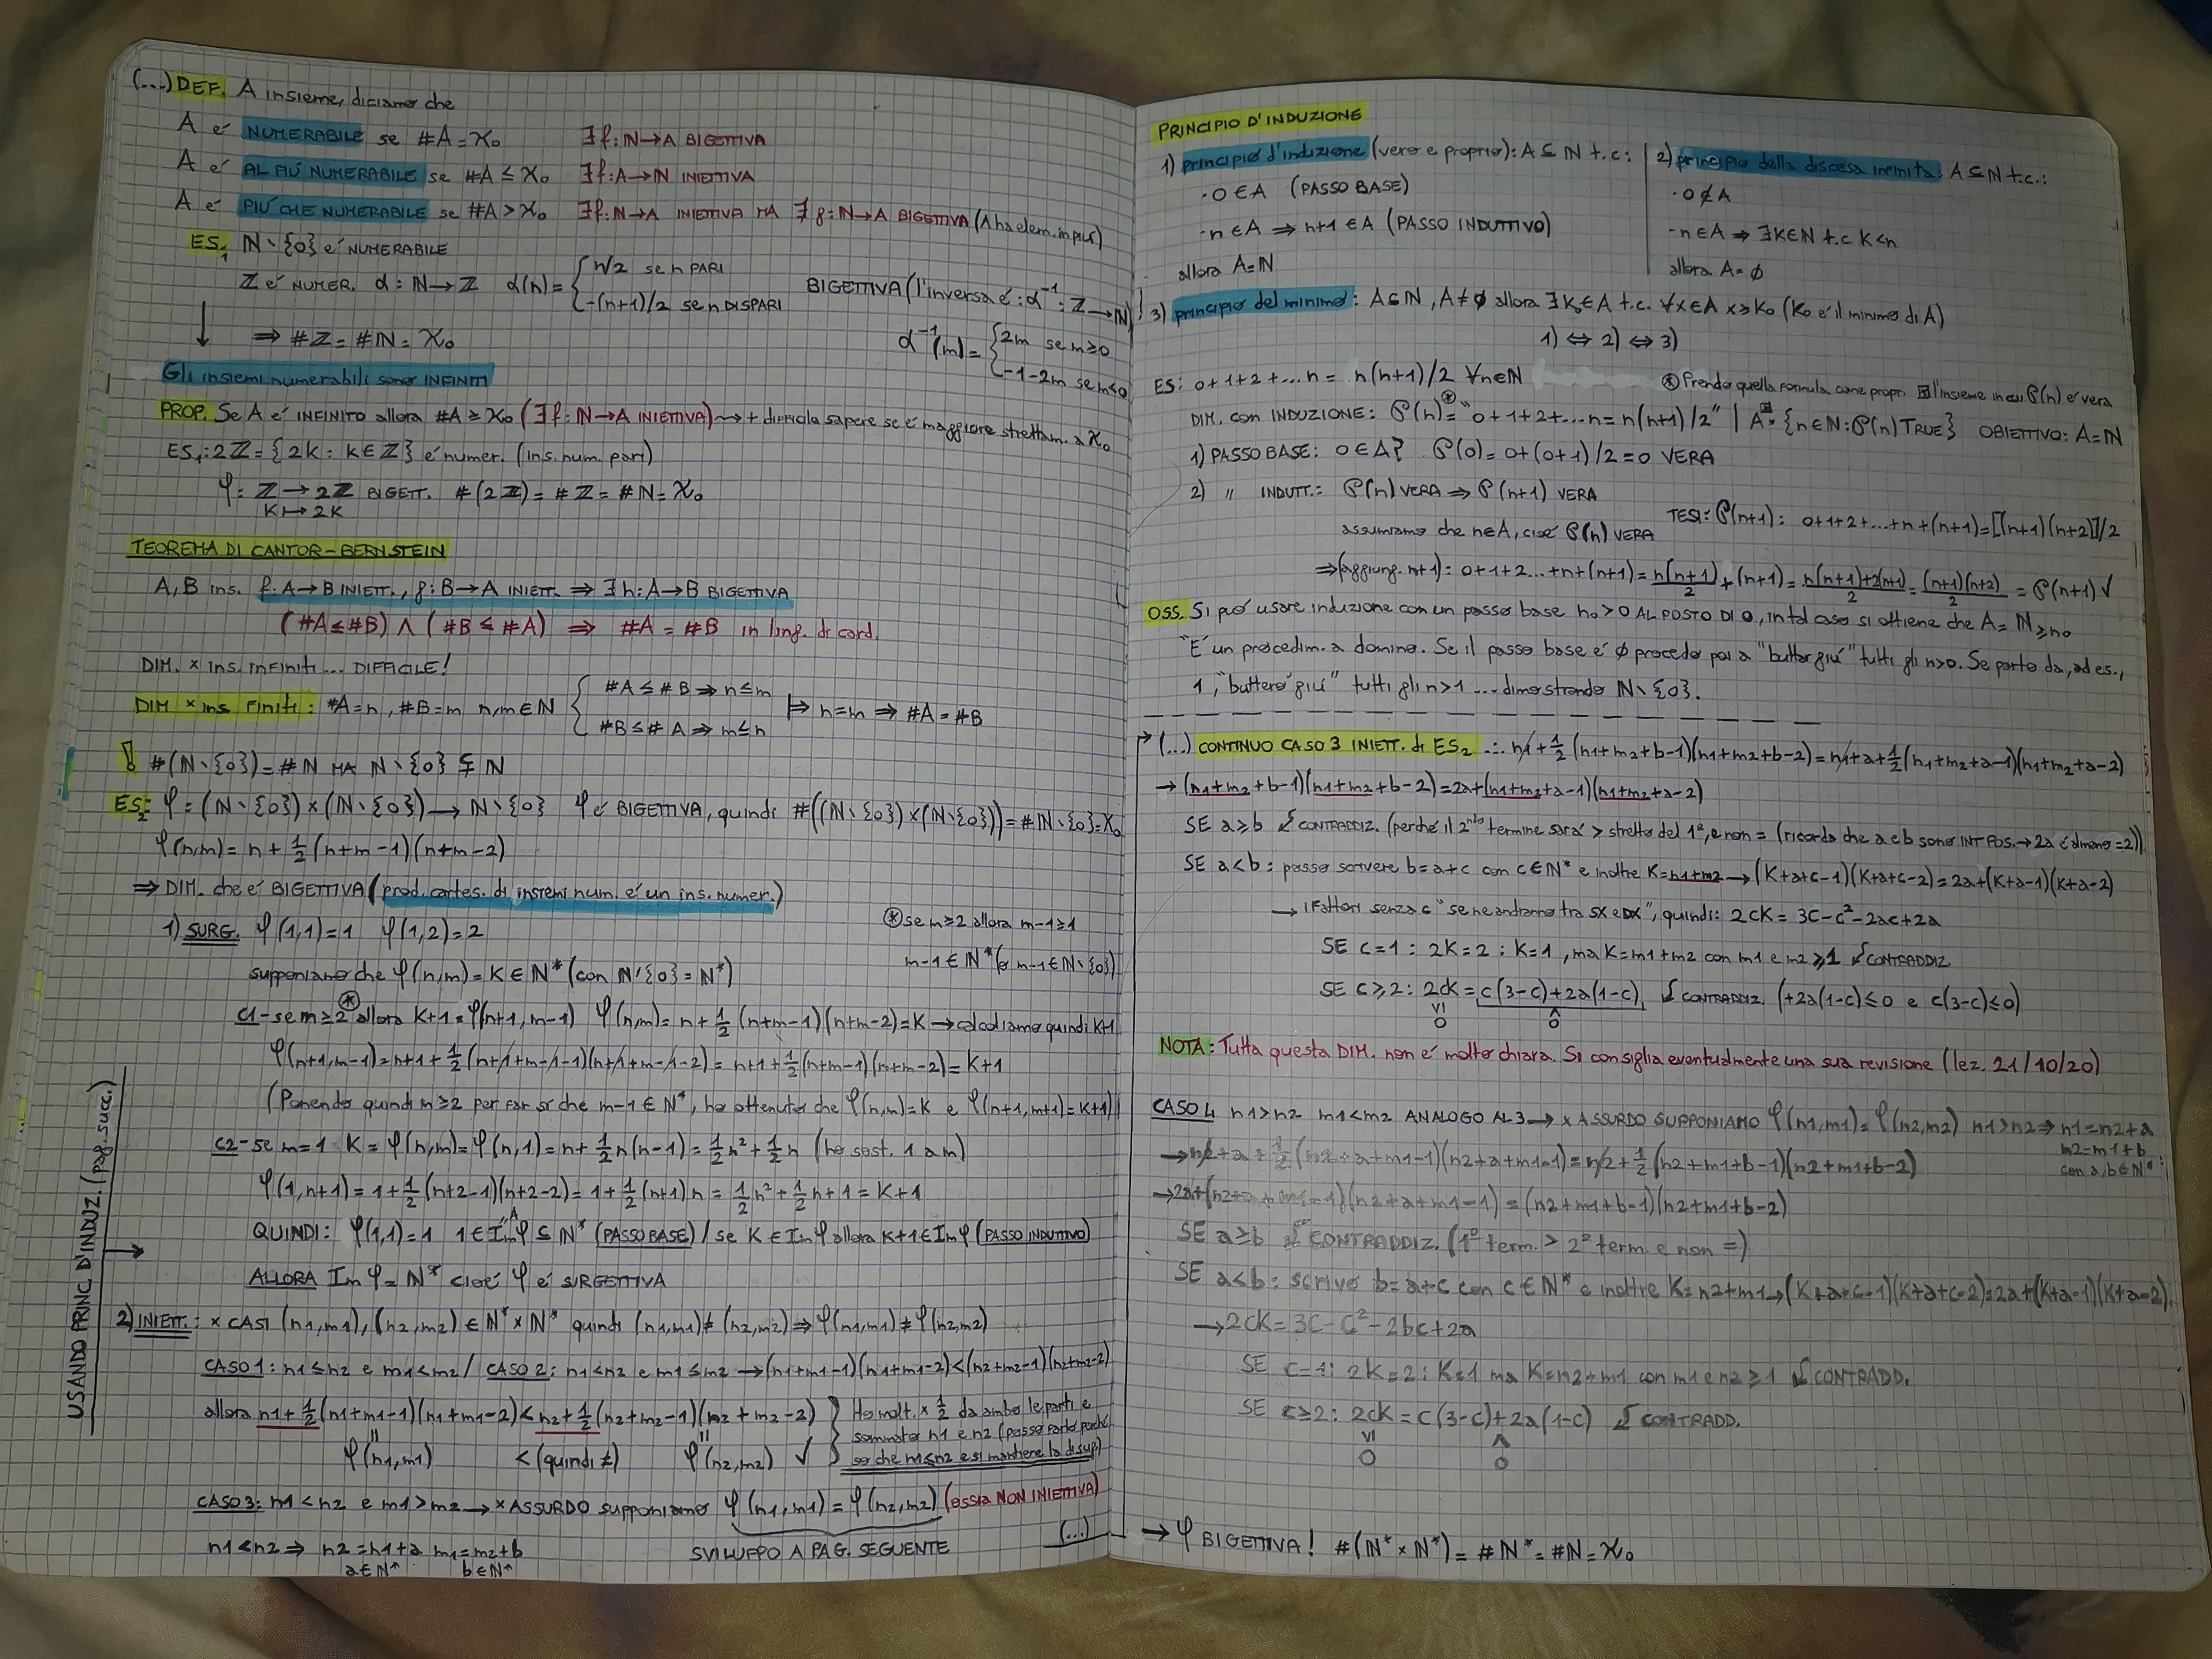 (...) DEF. A insieme, diciamo che
A é NUMERABILE se #A = ℵ₀ ∃f: ℕ→A BIGETTIVA
A é AL PIÚ NUMERABILE se #A ≤ ℵ₀ ∃f: A→ℕ INIETTIVA
A é PIÚ CHE NUMERABILE se #A > ℵ₀ ∃f: ℕ→A INIETTIVA MA ∄ g: ℕ→A BIGETTIVA (A ha elem. in piú)
ES₁ ℕ∖{0} é NUMERABILE
ℤ é NUMER. α: ℕ→ℤ α(n) = { n/2 se n PARI
-(n+1)/2 se n DISPARI
BIGETTIVA (l'inversa é: α⁻¹: ℤ→ℕ)
⇒ #ℤ = #ℕ = ℵ₀
α⁻¹(m) = { 2m se m≥0
-1-2m se m<0
Gli insiemi numerabili sono INFINITI
PROP. Se A é INFINITO allora #A ≥ ℵ₀ (∃f: ℕ→A INIETTIVA) ⇝ + difficile sapere se é maggiore strettam. a ℵ₀
ES₁: 2ℤ = {2k : k∈ℤ} é numer. (ins. num. pari)
φ: ℤ → 2ℤ BIGETT. #(2ℤ) = #ℤ = #ℕ = ℵ₀
k ↦ 2k
TEOREMA DI CANTOR-BERNSTEIN
A, B ins. f: A→B INIETT., g: B→A INIETT. ⇒ ∃h: A→B BIGETTIVA
(#A ≤ #B) ∧ (#B ≤ #A) ⇒ #A = #B in ling. di card.
DIM. × ins. infiniti ... DIFFICILE!
DIM × ins. FINITI: #A=n, #B=m n,m∈ℕ { #A ≤ #B ⇒ n≤m
#B ≤ #A ⇒ m≤n
⊨ n=m ⇒ #A = #B
! #(ℕ∖{0}) = #ℕ MA ℕ∖{0} ⊊ ℕ
ES₂: φ = (ℕ∖{0}) × (ℕ∖{0}) → ℕ∖{0} φ é BIGETTIVA, quindi #((ℕ∖{0}) × (ℕ∖{0})) = #ℕ∖{0} = ℵ₀
φ(n,m) = n + 1/2 (n+m-1)(n+m-2)
⇒ DIM. che é BIGETTIVA (prod. cartes. di insiemi num. é un ins. numer.)
1) SURG. φ(1,1) = 1 φ(1,2) = 2
⊛ se m≥2 allora m-1≥1
m-1 ∈ ℕ* (o m-1∈ℕ∖{0})
supponiamo che φ(n,m) = K ∈ ℕ* (con ℕ∖{0} = ℕ*)
C1- se m≥2 ⊛ allora K+1 = φ(n+1, m-1) φ(n,m) = n + 1/2 (n+m-1)(n+m-2) = K → calcoliamo quindi K+1
φ(n+1, m-1) = n+1 + 1/2 (n+1+m-1-1)(n+1+m-1-2) = n+1 + 1/2 (n+m-1)(n+m-2) = K+1
(Ponendo quindi m≥2 per far sí che m-1∈ℕ*, ho ottenuto che φ(n,m) = K e φ(n+1, m+1) = K+1)
C2- se m=1 K = φ(n,m) = φ(n,1) = n + 1/2 n(n-1) = 1/2 n² + 1/2 n (ho sost. 1 a m)
φ(1, n+1) = 1 + 1/2 (n+2-1)(n+2-2) = 1 + 1/2 (n+1)n = 1/2 n² + 1/2 n + 1 = K+1
QUINDI: φ(1,1) = 1 1∈Imφ ⊆ ℕ* (PASSO BASE) / se K ∈ Imφ allora K+1 ∈ Imφ (PASSO INDUTTIVO)
"A"
ALLORA Im φ = ℕ* cioé φ é SURGETTIVA
USANDO PRINC. D'INDUZ. (pag. succ.)
2) INIETT.: × CASI (n1,m1), (n2,m2) ∈ ℕ*×ℕ* quindi (n1,m1) ≠ (n2,m2) ⇒ φ(n1,m1) ≠ φ(n2,m2)
CASO 1: n1 ≤ n2 e m1 < m2 / CASO 2: n1 < n2 e m1 ≤ m2 → (n1+m1-1)(n1+m1-2) < (n2+m2-1)(n2+m2-2)
allora n1 + 1/2 (n1+m1-1)(n1+m1-2) < n2 + 1/2 (n2+m2-1)(n2+m2-2)
φ(n1,m1) < (quindi ≠) φ(n2,m2) ✓
Ho molt. × 1/2 da ambo le parti e
sommato n1 e n2 (posso farlo perché
so che n1≤n2 e si mantiene la disug.)
CASO 3: n1 < n2 e m1 > m2 → × ASSURDO supponiamo φ(n1,m1) = φ(n2,m2) (ossia NON INIETTIVA)
n1 < n2 ⇒ n2 = n1+a m1 = m2+b
a∈ℕ* b∈ℕ*
SVILUPPO A PAG. SEGUENTE (...)
PRINCIPIO D'INDUZIONE
1) principio d'induzione (vero e proprio): A ⊆ ℕ t.c:
· 0 ∈ A (PASSO BASE)
· n∈A ⇒ n+1 ∈ A (PASSO INDUTTIVO)
allora A = ℕ
2) principio della discesa infinita: A ⊆ ℕ t.c.:
· 0 ∉ A
· n∈A ⇒ ∃K∈ℕ t.c K<n
allora A = ∅
3) principio del minimo: A⊆ℕ, A≠∅ allora ∃K₀∈A t.c. ∀x∈A x≥K₀ (K₀ é il minimo di A)
1) ⇔ 2) ⇔ 3)
ES: 0+1+2+...n = n(n+1)/2 ∀n∈ℕ
⊛ Prendo quella formula come propr. ⊡ l'insieme in cui P(n) é vera
DIM. con INDUZIONE: P(n) ⊛= "0+1+2+...n = n(n+1)/2" | A ⊡= {n∈ℕ: P(n) TRUE} OBIETTIVO: A=ℕ
1) PASSO BASE: 0∈A? P(0) = 0+(0+1)/2 = 0 VERA
2) " INDUTT.: P(n) VERA ⇒ P(n+1) VERA
assumiamo che n∈A, cioé P(n) VERA
TESI: P(n+1): 0+1+2+...+n+(n+1) = [(n+1)(n+2)]/2
⇒ (aggiung. n+1): 0+1+2...+n+(n+1) = n(n+1)/2 + (n+1) = n(n+1)+2(n+1)/2 = (n+1)(n+2)/2 = P(n+1) ✓
OSS. Si puó usare induzione con un passo base n₀>0 AL POSTO DI 0, in tal caso si ottiene che A = ℕ≥n₀
"É un procedim. a domino. Se il passo base é 0 procedo poi a "buttar giú" tutti gli n>0. Se parto da, ad es.,
1, "butteró giú" tutti gli n>1 ... dimostrando ℕ∖{0}.
(...) CONTINUO CASO 3 INIETT. di ES₂ ... n1 + 1/2 (n1+m2+b-1)(n1+m2+b-2) = n1+a+1/2 (n1+m2+a-1)(n1+m2+a-2)
→ (n1+m2+b-1)(n1+m2+b-2) = 2a+(n1+m2+a-1)(n1+m2+a-2)
SE a≥b ↯ CONTRADDIZ. (perché il 2ⁿᵈᵒ termine sará > stretto del 1°, e non = (ricorda che a e b sono INT POS. → 2a é almeno =2))
SE a<b: posso scrivere b=a+c con c∈ℕ* e inoltre K=n1+m2 → (K+a+c-1)(K+a+c-2) = 2a+(K+a-1)(K+a-2)
→ i fattori senza c "se ne andranno tra SX e DX", quindi: 2cK = 3c-c²-2ac+2a
SE c=1: 2K=2 ; K=1, ma K=m1+m2 con m1 e m2 ≥1 ↯ CONTRADDIZ
SE c≥2: 2cK = c(3-c)+2a(1-c) ↯ CONTRADDIZ. (+2a(1-c)≤0 e c(3-c)≤0)
VI ∧
0 0
NOTA: Tutta questa DIM. non é molto chiara. Si consiglia eventualmente una sua revisione (lez. 21/10/20)
CASO 4 n1>n2 m1<m2 ANALOGO AL 3 → × ASSURDO SUPPONIAMO φ(n1,m1) = φ(n2,m2) n1>n2 ⇒ n1=n2+a
m2=m1+b
con a,b∈ℕ*:
→ n2+a+1/2 (n2+a+m1-1)(n2+a+m1-1) = n2+1/2 (n2+m1+b-1)(n2+m1+b-2)
→ 2a+(n2+a+m1-1)(n2+a+m1-1) = (n2+m1+b-1)(n2+m1+b-2)
SE a≥b ↯ CONTRADDIZ. (1° term. > 2° term. e non =)
SE a<b: scrivo b=a+c con c∈ℕ* e inoltre K=n2+m1 → (K+a+c-1)(K+a+c-2)=2a+(K+a-1)(K+a-2).
→ 2cK = 3c-c²-2bc+2a
SE c=1: 2K=2; K=1 ma K=n2+m1 con m1 e n2 ≥1 ↯ CONTRADD.
SE c≥2: 2cK = c(3-c)+2a(1-c) ↯ CONTRADD.
VI ∧
0 0
→ φ BIGETTIVA! #(ℕ*×ℕ*) = #ℕ* = #ℕ = ℵ₀